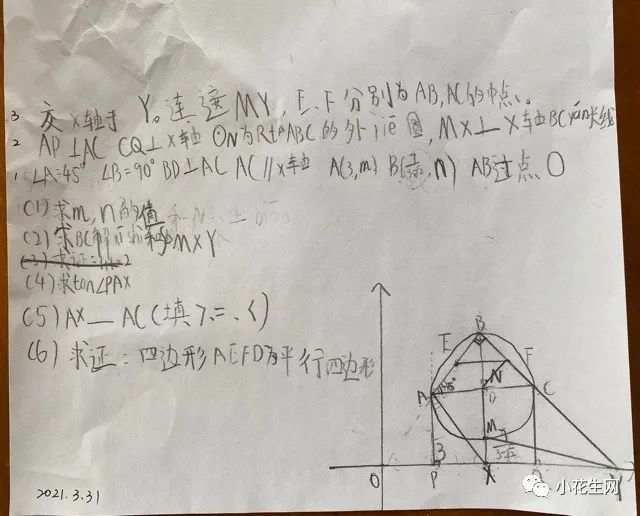 3 交X轴于 Y。连 MY, E、F分别为AB,AC的中点。
2 AP⊥AC CQ⊥X轴 ⊙N为Rt△ABC的外jiē圆, MX⊥X轴 BC 长线
1 ∠A=45° ∠B=90° BD⊥AC AC//X轴 A(3,m) B( ,n) AB过点O
(1)求m,n的值
(2)求BC解 shì和 MXY
(4)求tan∠PAX
(5)AX__AC(填>、=、<)
(6)求证:四边形AEFD为平行四边形
B
E
F
A
45°
N
D
C
M
3
O
P
X
Q
Y
2021.3.31
小花生网